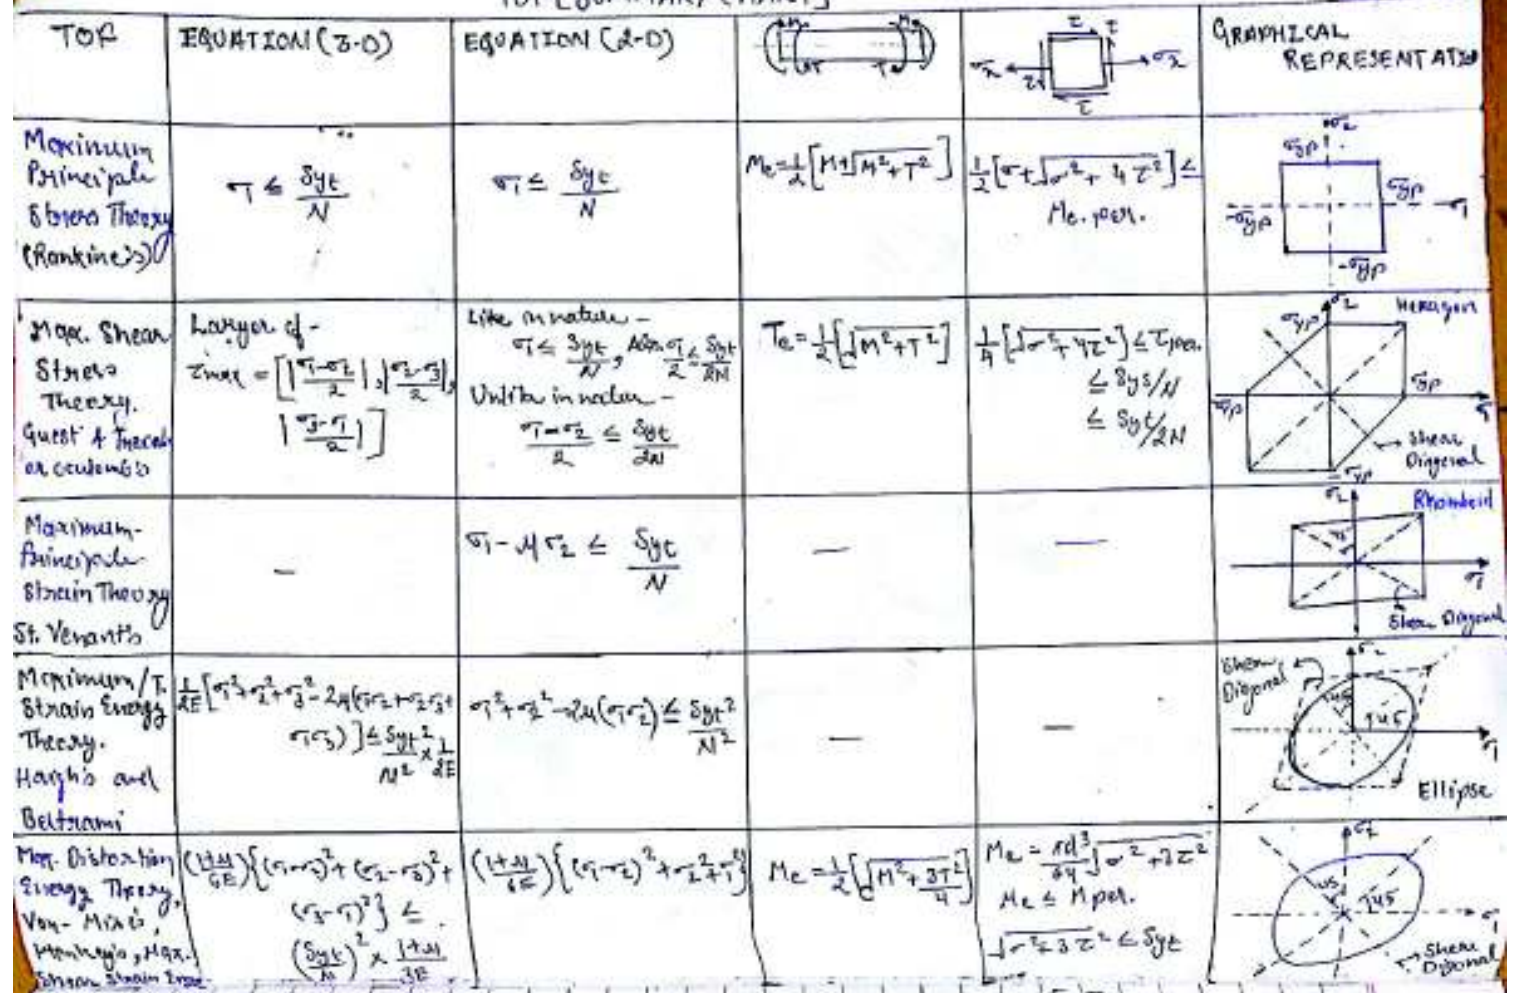 TOF
EQUATION (3-D)
EQUATION (2-D)
GRAPHICAL
REPRESENTATION
σx
τ
τ
σx
τ
τ
Maximum
Principle
Stress Theory
(Rankine's)
σ1 ≤ Syt/N
σ1 ≤ Syt/N
Me = 1/2 [M + √M² + T²]
1/2 [σ + √σ² + 4τ²] ≤
Me. per.
σ2
σyp
σyp
-σyp
σ1
-σyp
Max. Shear
Stress
Theory.
Guest & Tresca
or coulomb's
Larger of -
τmax = [|σ1-σ2/2|, |σ2-σ3/2|,
|σ3-σ1/2|]
Like in nature -
σ1 ≤ Syt/N, Also σ1/2 ≤ Syt/2N
Unlike in nature -
σ1-σ2/2 ≤ Syt/2N
Te = 1/2 [√M² + T²]
1/4 [√σ² + 4τ²] ≤ τper.
≤ Sys/N
≤ Syt/2N
σ2
Hexagon
σyp
σyp
σyp
σ1
Shear
Diagonal
-σyp
Maximum-
Principle
Strain Theory
St. Venant's
-
σ1 - μσ2 ≤ Syt/N
-
-
σ2
Rhomboid
σ1
Shear Diagonal
Maximum/T.
Strain Energy
Theory.
Haigh's and
Beltrami
1/2E [σ1² + σ2² + σ3² - 2μ(σ1σ2 + σ2σ3 +
σ1σ3)] ≤ Syt²/N² × 1/2E
σ1² + σ2² - 2μ(σ1σ2) ≤ Syt²/N²
-
-
Shear
Diagonal
σ2
45
45
σ1
Ellipse
Max. Distortion
Energy Theory,
Von-Mises,
Henkey's, Max.
Shear Strain Energy
(1+μ/6E){(σ1-σ2)² + (σ2-σ3)² +
(σ3-σ1)²} ≤
(Syt/N)² × 1+μ/3E
(1+μ/6E){(σ1-σ2)² + σ2² + σ1²}
Me = 1/2 [√M² + 3T²/4]
Me = πd³/64 √σ² + 3τ²
Me ≤ Mper.
√σ² + 3τ² ≤ Syt
σ2
45
45
σ1
Shear
Diagonal